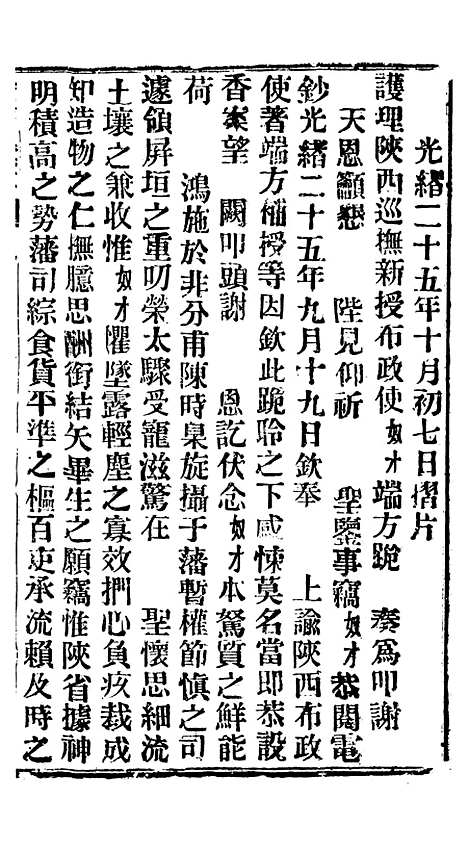 光緒二十五年十月初七日摺片
護理陝西巡撫新授布政使奴才端方跪　奏爲叩謝
天恩籲懇　陛見仰祈　聖鑒事竊奴才恭閱電
鈔光緒二十五年九月十九日欽奉　上諭陝西布政
使著端方補授等因欽此跪聆之下感悚莫名當即恭設
香案望　闕叩頭謝　恩訖伏念奴才本駑質之鮮能
荷　鴻施於非分甫陳時臬旋攝于藩暫權節慎之司
遽領屏垣之重叨榮太驟受寵滋驚在　聖懷思細流
土壤之兼收惟奴才懼墜露輕塵之寡效捫心負疚裁成
知造物之仁撫臆思酬銜結矢畢生之願竊惟陝省據神
明積高之勢藩司綜食貨平準之樞百吏承流賴及時之